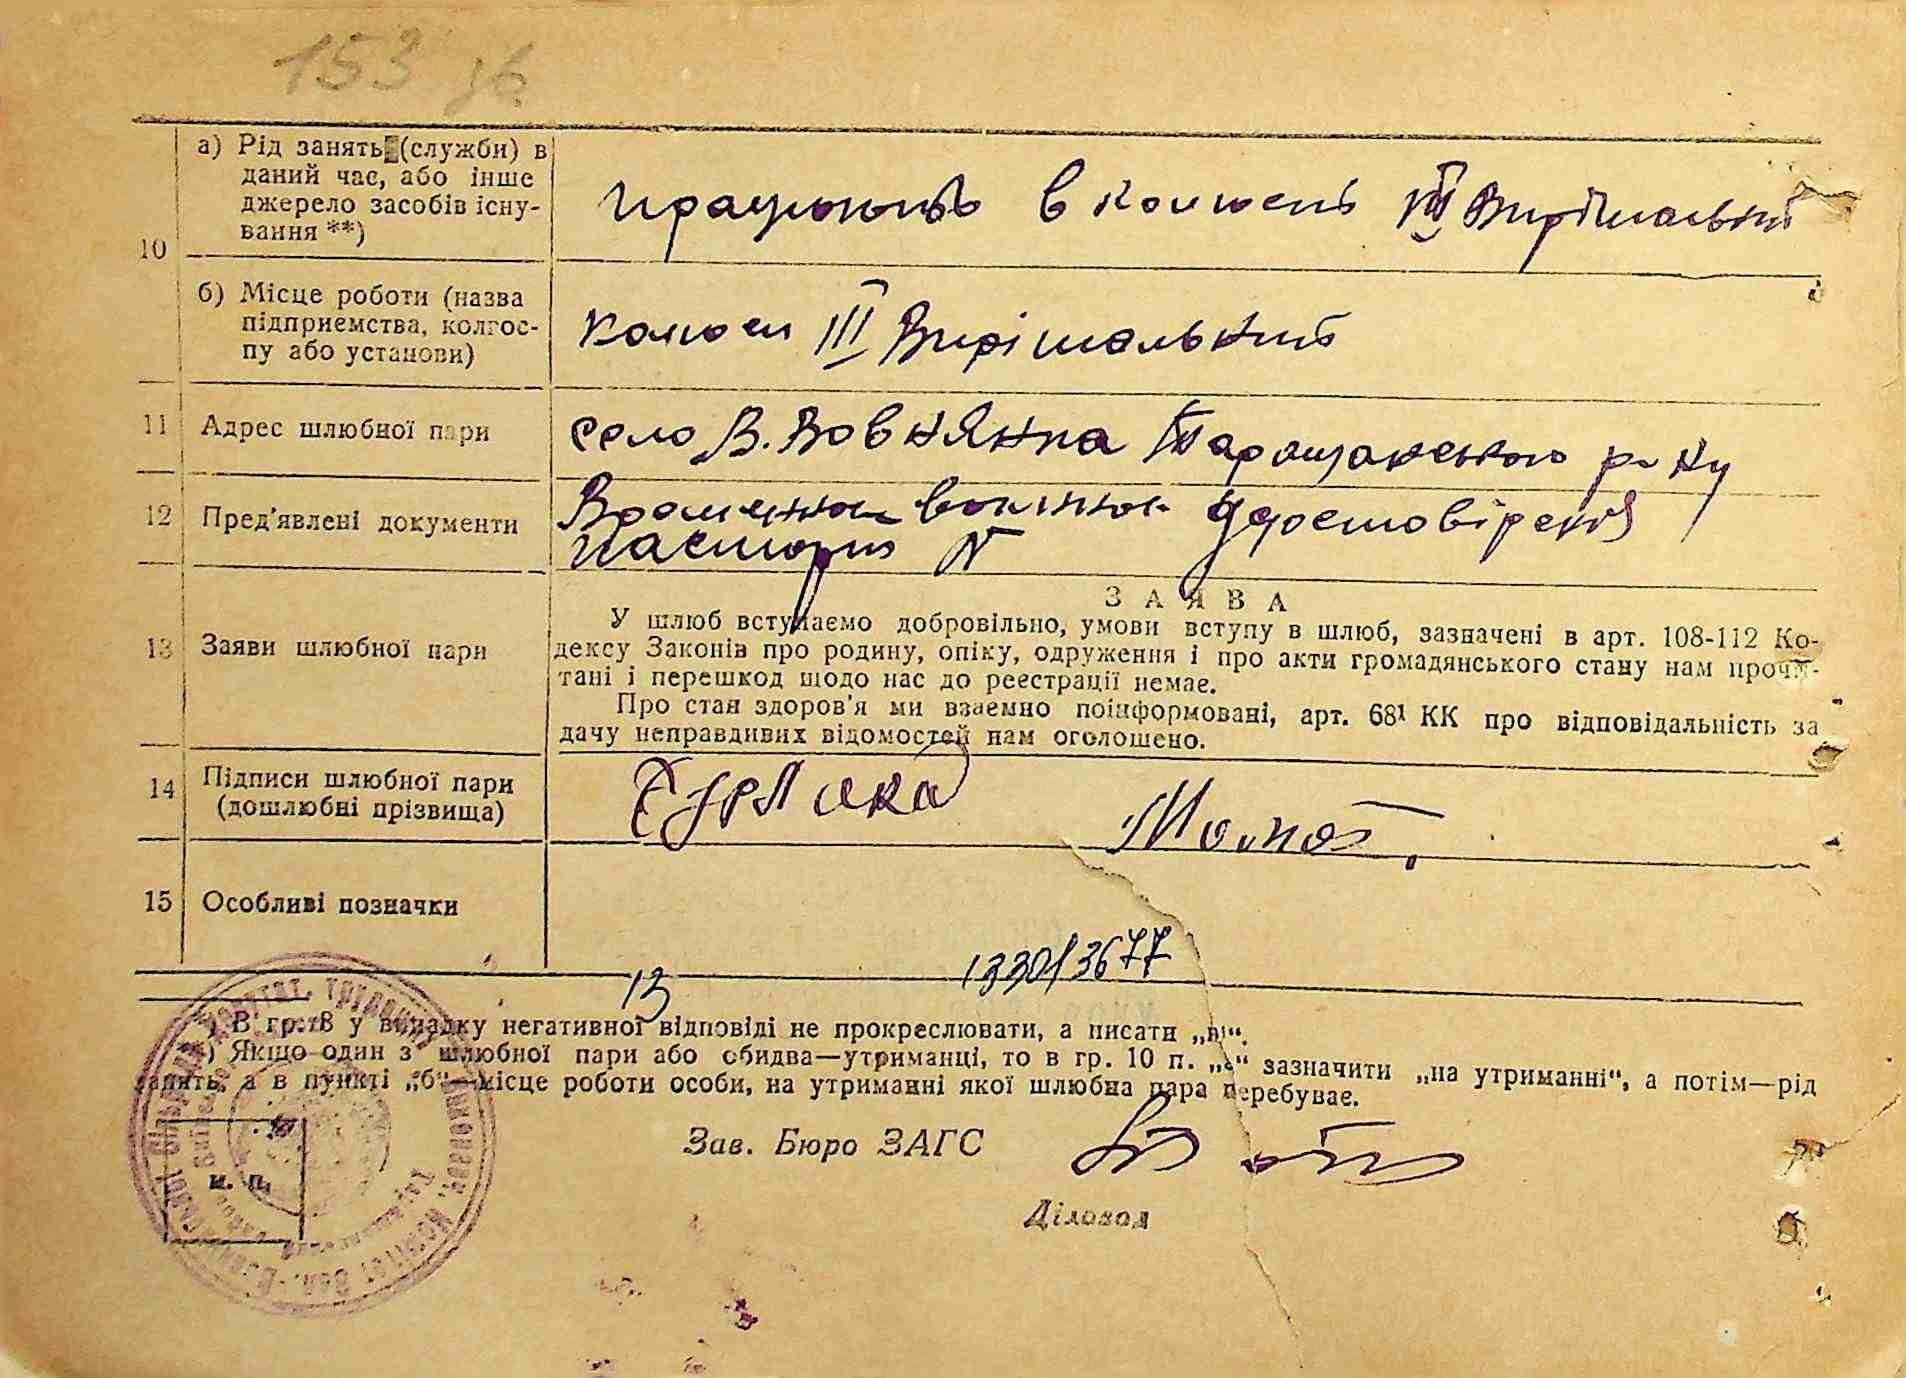 153 зв.
а) Рід занять (служби) в
даний час, або інше
джерело засобів існу-
вання **)
10
працюють в колгоспі ІІІ Вирішальний
б) Місце роботи (назва
підприємства, колгос-
пу або установи)
ІІІ Вирішальний
11 Адрес шлюбної пари
село В. Вовнянка Таращанського р-ну
12 Пред'явлені документи
удостовірення
паспорт N
13 Заяви шлюбної пари
ЗАЯВА
У шлюб вступаємо добровільно, умови вступу в шлюб, зазначені в арт. 108-112 Ко-
дексу Законів про родину, опіку, одруження і про акти громадянського стану нам прочи-
тані і перешкод щодо нас до реєстрації немає.
Про стан здоров'я ми взаємно поінформовані, арт. 68¹ КК про відповідальність за
дачу неправдивих відомостей нам оголошено.
14 Підписи шлюбної пари
(дошлюбні прізвища)
15 Особливі позначки
13 1330/3677
) В гр. 8 у випадку негативної відповіді не прокреслювати, а писати „ні“.
) Якщо один з шлюбної пари або обидва—утриманці, то в гр. 10 п. „а“ зазначити „на утриманні“, а потім—рід
занять, а в пункті „б“—місце роботи особи, на утриманні якої шлюбна пара перебуває.
Зав. Бюро ЗАГС
м. п.
Діловод